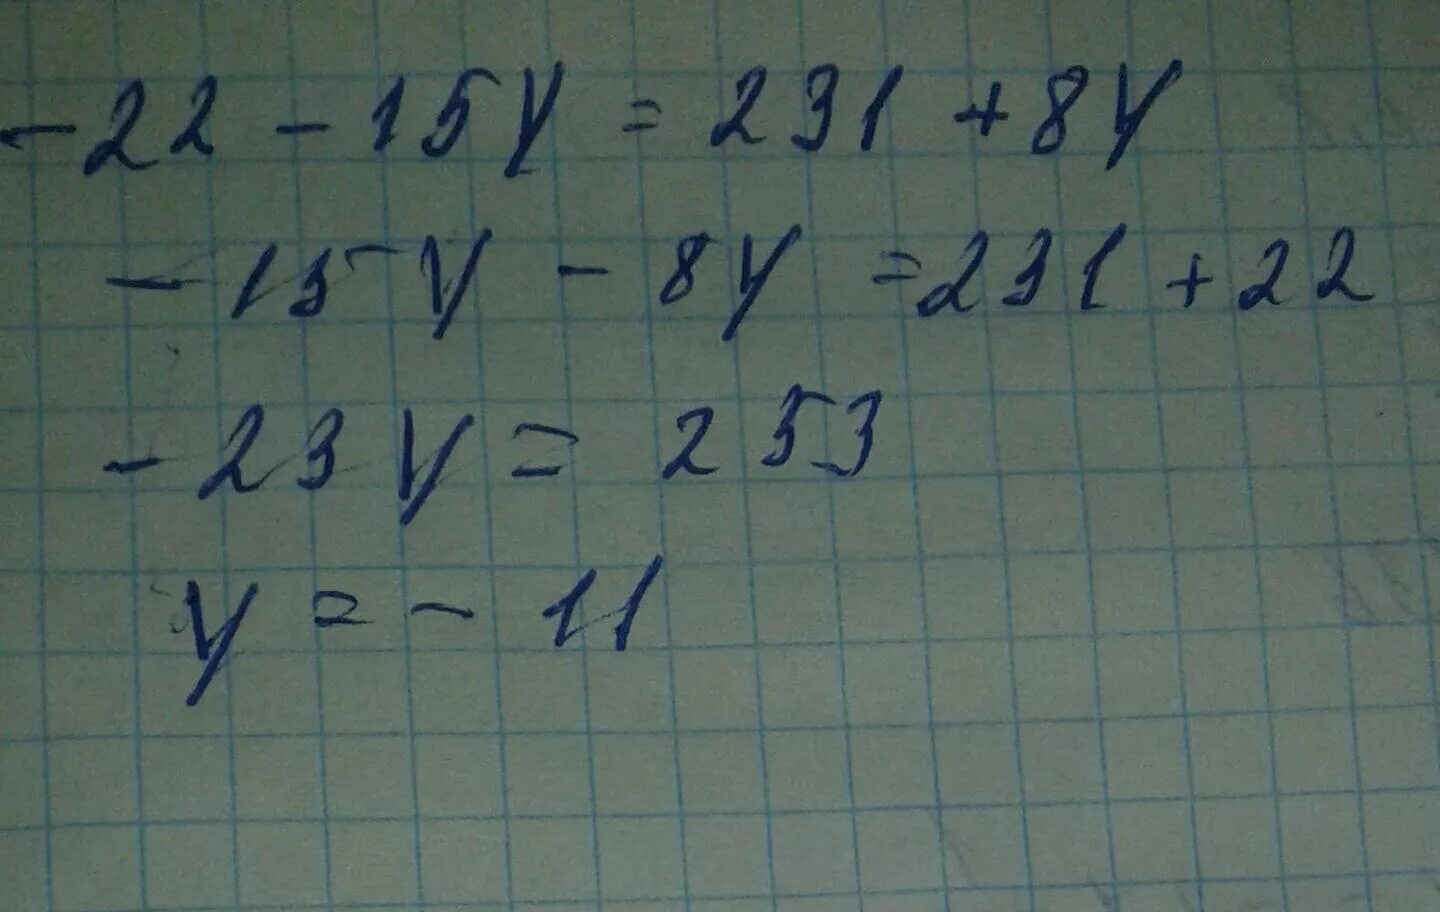 -22 - 15y = 231 + 8y
-15y - 8y = 231 + 22
-23y = 253
y = - 11